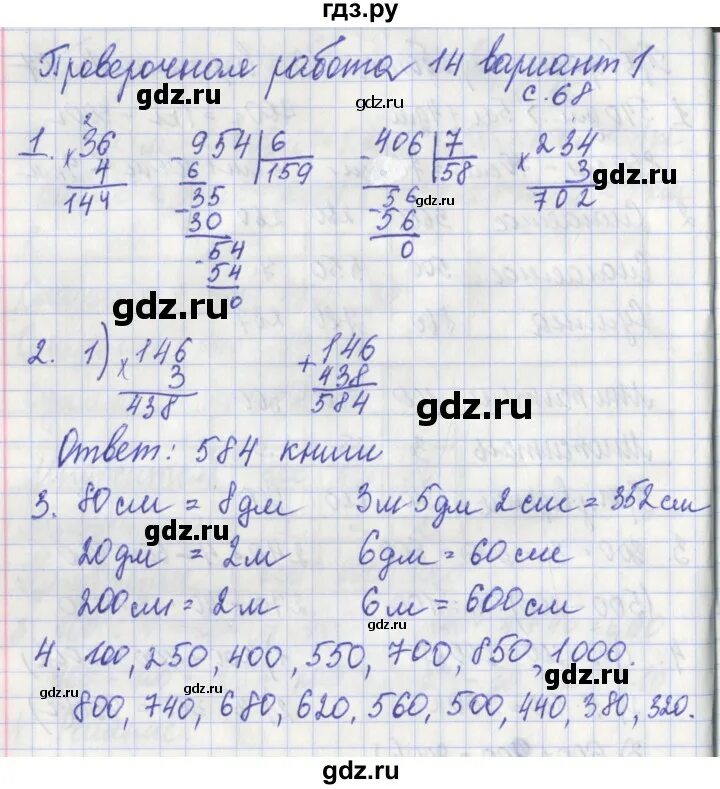 гдз.ру
Проверочная работа 14 вариант 1
gdz.ru gdz.ru с. 68
1. 2
× 36 - 954 | 6 - 406 | 7 × 234
4 6 159 58 3 gdz.ru
144 - 35 - 56 gdz.ru 702
30 56
- 54 0
54
0
gdz.ru
2. 1) × 146 + 146
3 438
438 584 gdz.ru
Ответ: 584 книги
3. 80 см = 8 дм 3м 5дм 2см = 352 см
gdz.ru
20 дм = 2 м 6 дм = 60 см
200 см = 2 м 6 м = 600 см
gdz.ru
4. 100, 250, 400, 550, 700, 850, 1000.
gdz.ru gdz.ru gdz.ru
800, 740, 680, 620, 560, 500, 440, 380, 320.
gdz.ru